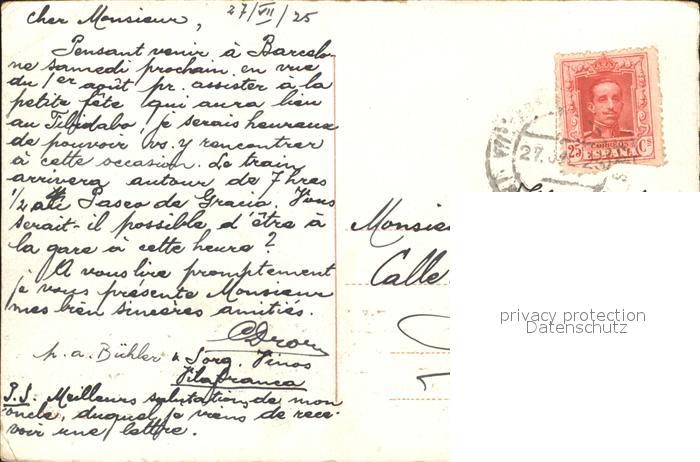 27/VII/25
Cher Monsieur,
Pensant venir à Barcelo-
ne samedi prochain en vue
du 1er août pr. assister à la
petite fête qui aura lieu
au Tibidabo je serais heureux
de pouvoir vs. y rencontrer
à cette occasion. Le train
arrivera autour de 7 hres
1/2 au Paseo de Gracia. Vous
serait-il possible d'être à
la gare à cette heure?
A vous lire promptement
je vous présente Monsieur
mes bien sincères amitiés.
p.a. Bühler &
Vinos
Vilafranca
P.S. Meilleurs salutations de mon
oncle, duquel je viens de rece-
voir une lettre.
CORREOS
25 ESPAÑA Cs
Calle
privacy protection
Datenschutz